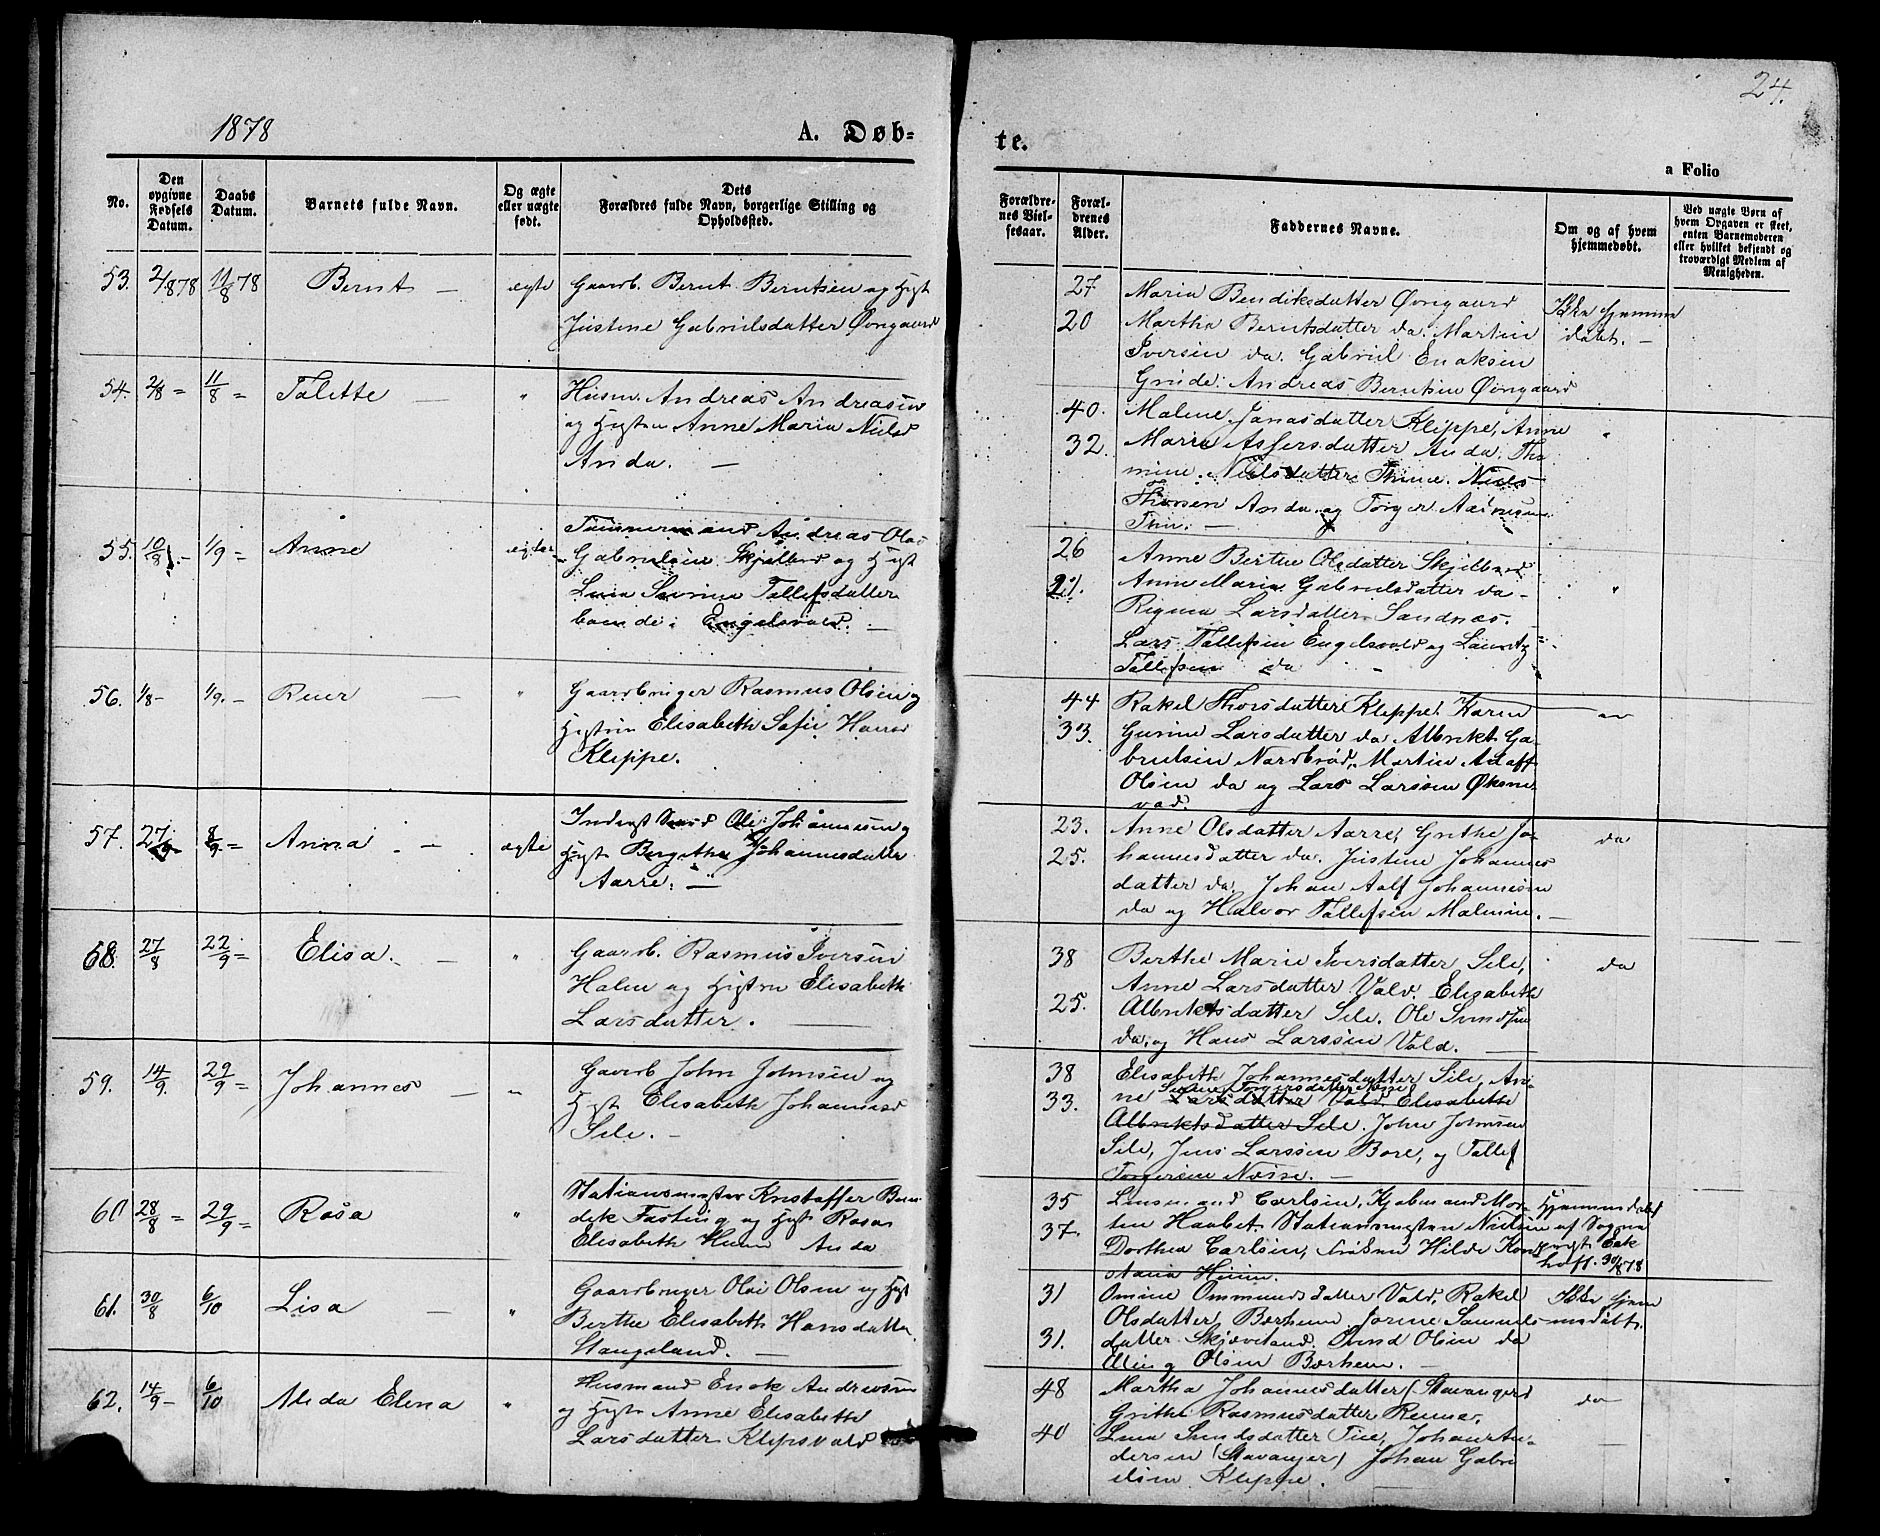 1878
A. Døb-
te.
24.
a Folio
No.
Den opgivne Fødsels Datum.
Daabs Datum.
Barnets fulde Navn.
Og ægte eller uægte født.
Dets Forældres fulde Navn, borgerlige Stilling og Opholdssted.
Forældrenes Vielsesaar.
Forældrenes Alder.
Faddernes Navne.
Om og af hvem hjemmedøbt.
Ved uægte Børn af hvem Opgaven er skeet, enten Barnemoderen eller hvilket bekjendt og troværdigt Medlem af Menigheden.
53. 2/878 11/8 78 Bernt — ægte Gaardb. Bernt Berntsen og Hgst
Justine Gabrielsdatter Øvregaard
27 Maria Bendiksdatter Øvregaard
20 Martha Berntsdatter da. Martin
Iversen da. Gabriel Enoksen
Grude. Andreas Berntsen Øvregaard
Ikke hjemme
døbt. —
54. 2/8 = 11/8 = Talette — " Husm. Andreas Andreasen
og Hgstru Anne Maria Niels
Anda. —
40. Malene Jonasdatter Kleppe, Anne
32. Maria Asgersdatter Anda. Tho
mine Nielsdatter Thime. Niels
Anda og Torger
Thim. — "
55. 10/8 - 1/9 = Anne ægte Tømmermand Andreas Olai
Gabrielsen Skjelbred og Hgst
Lina Serina Tollefsdatter
boende i Engelsvold. —
26 Anne Birthe Olsdatter Skjelbred
21. Anne Maria Gabrielsdatter da -
Regina Larsdatter Sandnæs.
Lars Tollefsen Engelsvold og Lauritz
Tollefsen da - "
56. 1/8 - 1/9. - Reier — " Gaardbruger Rasmus Olsen og
Hgstru Elisabeth Sofie
Kleppe.
44 Rakel Thorsdatter Kleppe. Karen
33. Gurine Larsdatter da Albrekt Ga-
brielsen Nordbrød, Martin Adolf
Olsen da og Lars Larssen Øksne
vad.
57. 27/9 8/9 = Anna . — ægte Ole Johannesen og
Hgst Bergithe Johannesdatter
Aarre. —
23. Anne Olsdatter Aarre, Grethe Jo-
25. hannesdatter da. Justine Johannes
datter da. Johan Aolf Johannesen
da og Halvor Tollefsen Malmin. —
da
58. 27/8 22/9 = Elisa. — " Gaardb. Rasmus Iversen
Halen og Hgstru Elisabeth
Larsdatter. —
38 Berthe Marie Iversdatter Sele,
Anne Larsdatter Vold. Elisabeth
25. Albrektsdatter Sele. Ole Svendsen
da. og Hans Larssen Vold. —
da
59. 14/9 29/9 = Johannes — " Gaardb John Johnsen og
Hgst Elisabeth Johannesd
Sele. —
38 Elisabeth Johannesdatter Sele, An-
Torgersdatter Næse
33. ne Larsdatter Vold. Elisabeth
Albrektsdatter Sele. John Johnsen
Sele, Jens Larssen Bore, og Tollef
Torgersen Næsse. —
60 28/8 = 29/9 = Rosa " Stationsmester Kristoffer Ben-
dik Fasting og Hgst Rosa
Elisabeth Huun Anda
35 Lensmand Carlsen, Kjøbmand Mor-
37. ten Haabet. Stationsmester Nielsen
Dorthea Carlsen, Frøken Hilde Kon-
stania Huun.
Hjemmedøbt
af Sogne
præst Eck
hoff. 30/878
61. 30/8 6/10 Lisa — " Gaardbruger Olai Olsen og Hgst
Berthe Elisabeth Hansdatter
Stangeland. —
31 Omine Ommundsdatter Vold, Rakel
Olsdatter, Bærheim Jorine Samuels-
31. datter Skjæveland. Ovind Olsen da
Elling Olsen Bærheim. —
Ikke hjem
mesdøbt.
62. 14/9 - 6/10 Alida Elena " Husmand Enok Andreasen
og Hgst Anne Elisabeth
Larsdatter Klepsvold
48 Martha Johannesdatter (Stavanger)
Grithe Rasmusdatter Renne.
40 Lina Svendsdatter Tue, Johan An-
dersen (Stavanger) Johan Gabri
elsen Kleppe.
da
—